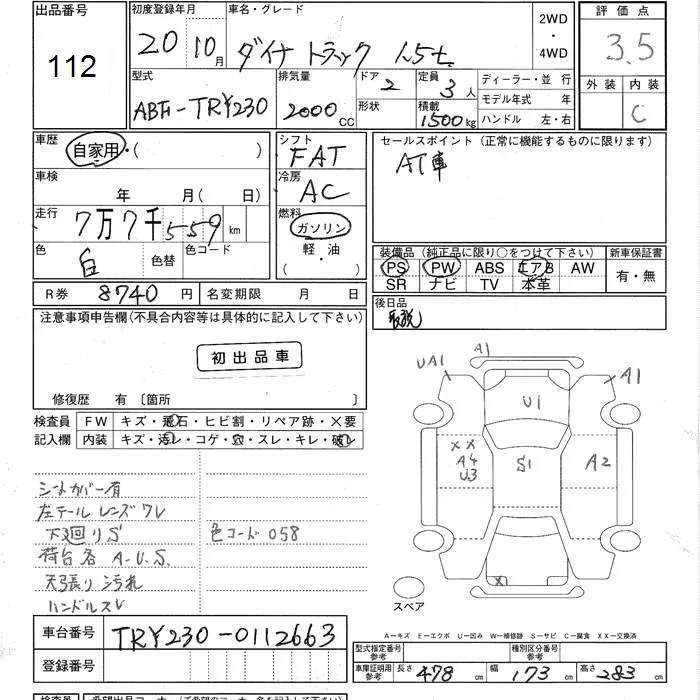 出品番号 初度登録年月 車名・グレード 2WD・4WD 評価点
112 20 10月 ダイナ トラック 1.5t 3.5
型式 排気量 ドア 定員 ディーラー・並行 外装 内装
ABF-TRY230 2000CC 2 3人 モデル年式 年 C
形状 積載 1500kg ハンドル 左・右
車歴 自家用・( ) シフト FAT セールスポイント (正常に機能するものに限ります)
車検 年 月(日) 冷房 AC AT車
走行 7万7千559km 燃料 ガソリン 軽・油 (・)
色 白 色替 色コード
装備品 (純正品に限り○をつけて下さい) 新車保証書
PS PW ABS エアB AW 有・無
SR ナビ TV 本革
R券 8740円 名変期限 月 日 後日品
取説
注意事項申告欄(不具合内容等は具体的に記入して下さい)
初出品車
修復歴 有〔箇所 〕
検査員 FW キズ・飛石・ヒビ割・リペア跡・×要
記入欄 内装 キズ・汚レ・コゲ・穴・スレ・キレ・破レ
シートカバー有
左テール レンズ ワレ
下廻りS 色コード 058
荷台各 A.U.S.
天張り 汚れ
ハンドルスレ
UA1 A1 A1
U1
XX A4 U3 S1 A2
X
スペア
A-キズ E-エクボ U-凹み W-補修跡 S-サビ C-腐食 XX-交換済
車台番号 TRY230-0112663 型式指定番号 参考 種別区分番号 参考
登録番号 車庫証明用 参考 長さ 478cm 幅 173cm 高さ 283cm
検査員 希望出品コーナー